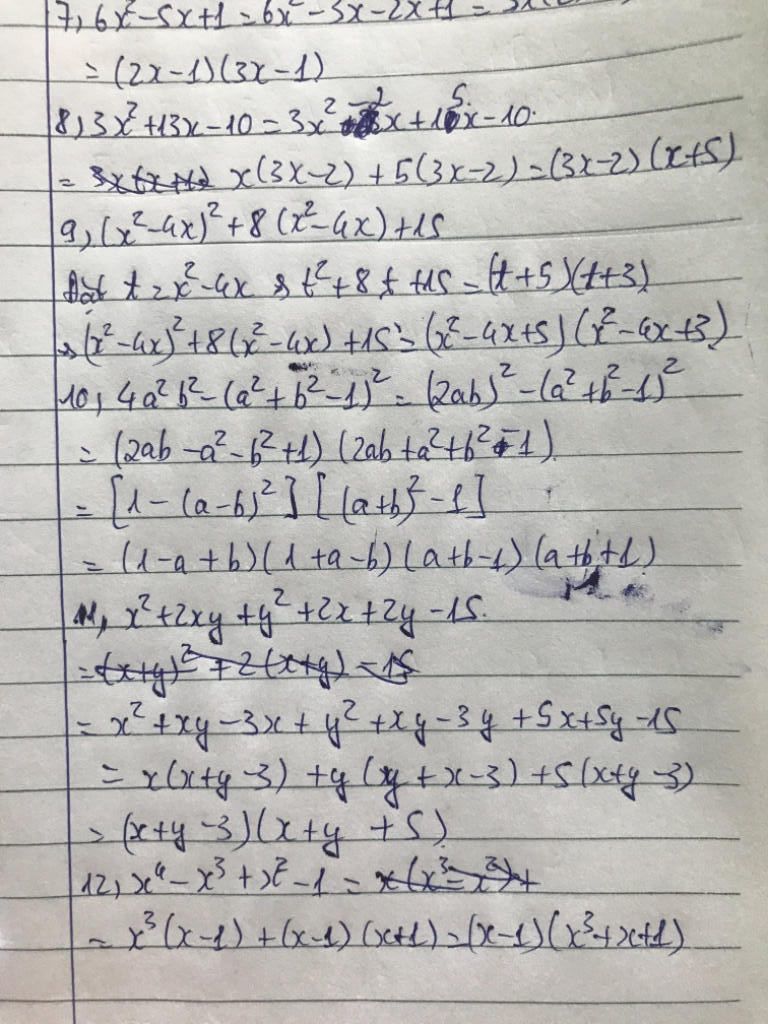 7, 6x² - 5x + 1 = 6x² - 3x - 2x + 1 =
= (2x - 1)(3x - 1)
8, 3x² + 13x - 10 = 3x² - 2x + 15x - 10.
= x(3x - 2) + 5(3x - 2) = (3x - 2)(x + 5)
9, (x² - 4x)² + 8(x² - 4x) + 15
Đặt t = x² - 4x → t² + 8t + 15 = (t + 5)(t + 3)
→ (x² - 4x)² + 8(x² - 4x) + 15 = (x² - 4x + 5)(x² - 4x + 3)
10, 4a²b² - (a² + b² - 1)² = (2ab)² - (a² + b² - 1)²
= (2ab - a² - b² + 1)(2ab + a² + b² - 1)
= [1 - (a - b)²][(a + b)² - 1]
= (1 - a + b)(1 + a - b)(a + b - 1)(a + b + 1)
11, x² + 2xy + y² + 2x + 2y - 15.
= (x + y)² + 2(x + y) - 15
= x² + xy - 3x + y² + xy - 3y + 5x + 5y - 15
= x(x + y - 3) + y(y + x - 3) + 5(x + y - 3)
= (x + y - 3)(x + y + 5)
12, x⁴ - x³ + x² - 1 = x(x³ - x²) +
= x³(x - 1) + (x - 1)(x + 1) = (x - 1)(x³ + x + 1)